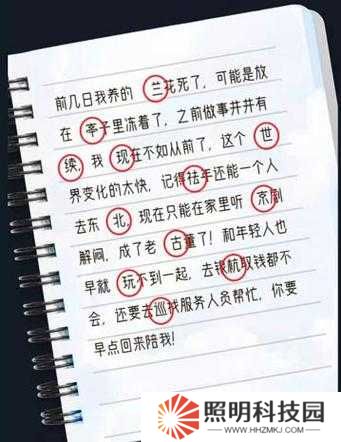 前几日我养的 兰花死了，可能是放
在 苓子里冻着了，之前做事井井有
续，我 现在不如从前了，这个 世
界变化的太快，记得祛年还能一个人
去东 北，现在只能在家里听 京剧
解闷，成了老 古董了！和年轻人也
早就 玩不到一起，去银杭取钱都不
会，还要去巡找服务人员帮忙，你要
早点回来陪我！
照明科技园
WWW.HHZMKJ.COM